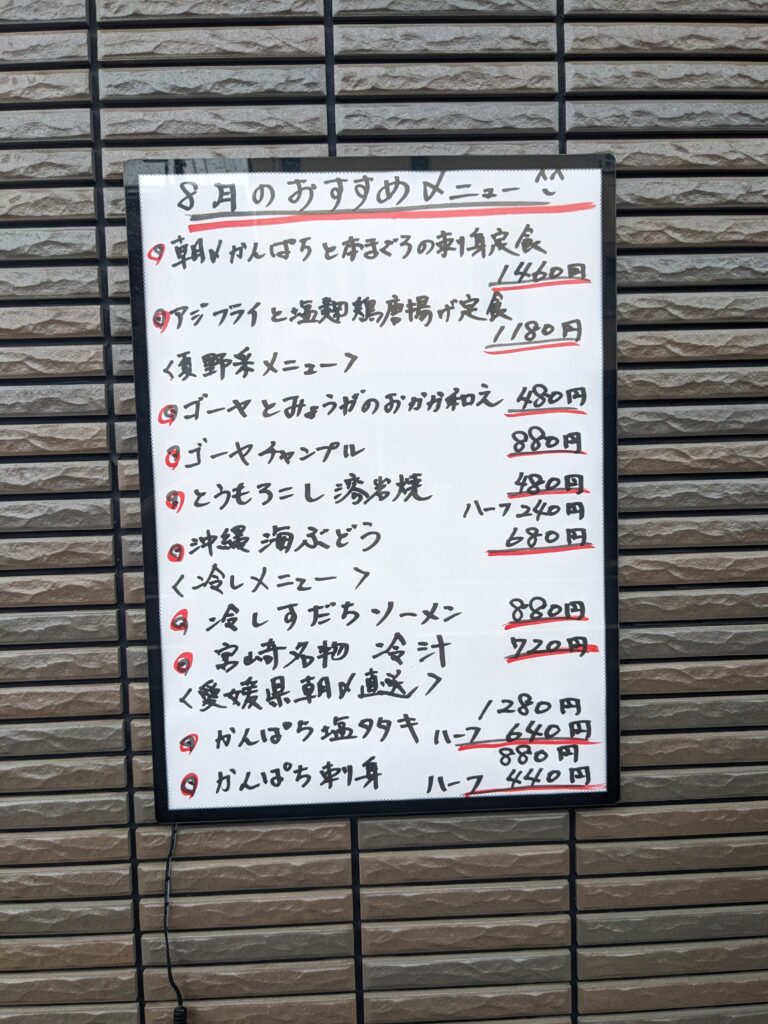 8月のおすすめメニュー^^
朝〆かんぱちと本まぐろの刺身定食
1460円
アジフライと塩麹鶏唐揚げ定食
1180円
<夏野菜メニュー>
ゴーヤとみょうがのおかか和え 480円
ゴーヤチャンプル 880円
とうもろこし溶岩焼 480円
ハーフ 240円
沖縄海ぶどう 680円
<冷しメニュー>
冷しすだちソーメン 880円
宮崎名物 冷汁 720円
<愛媛県朝〆直送>
1280円
かんぱち塩タタキ ハーフ 640円
880円
かんぱち刺身 ハーフ 440円